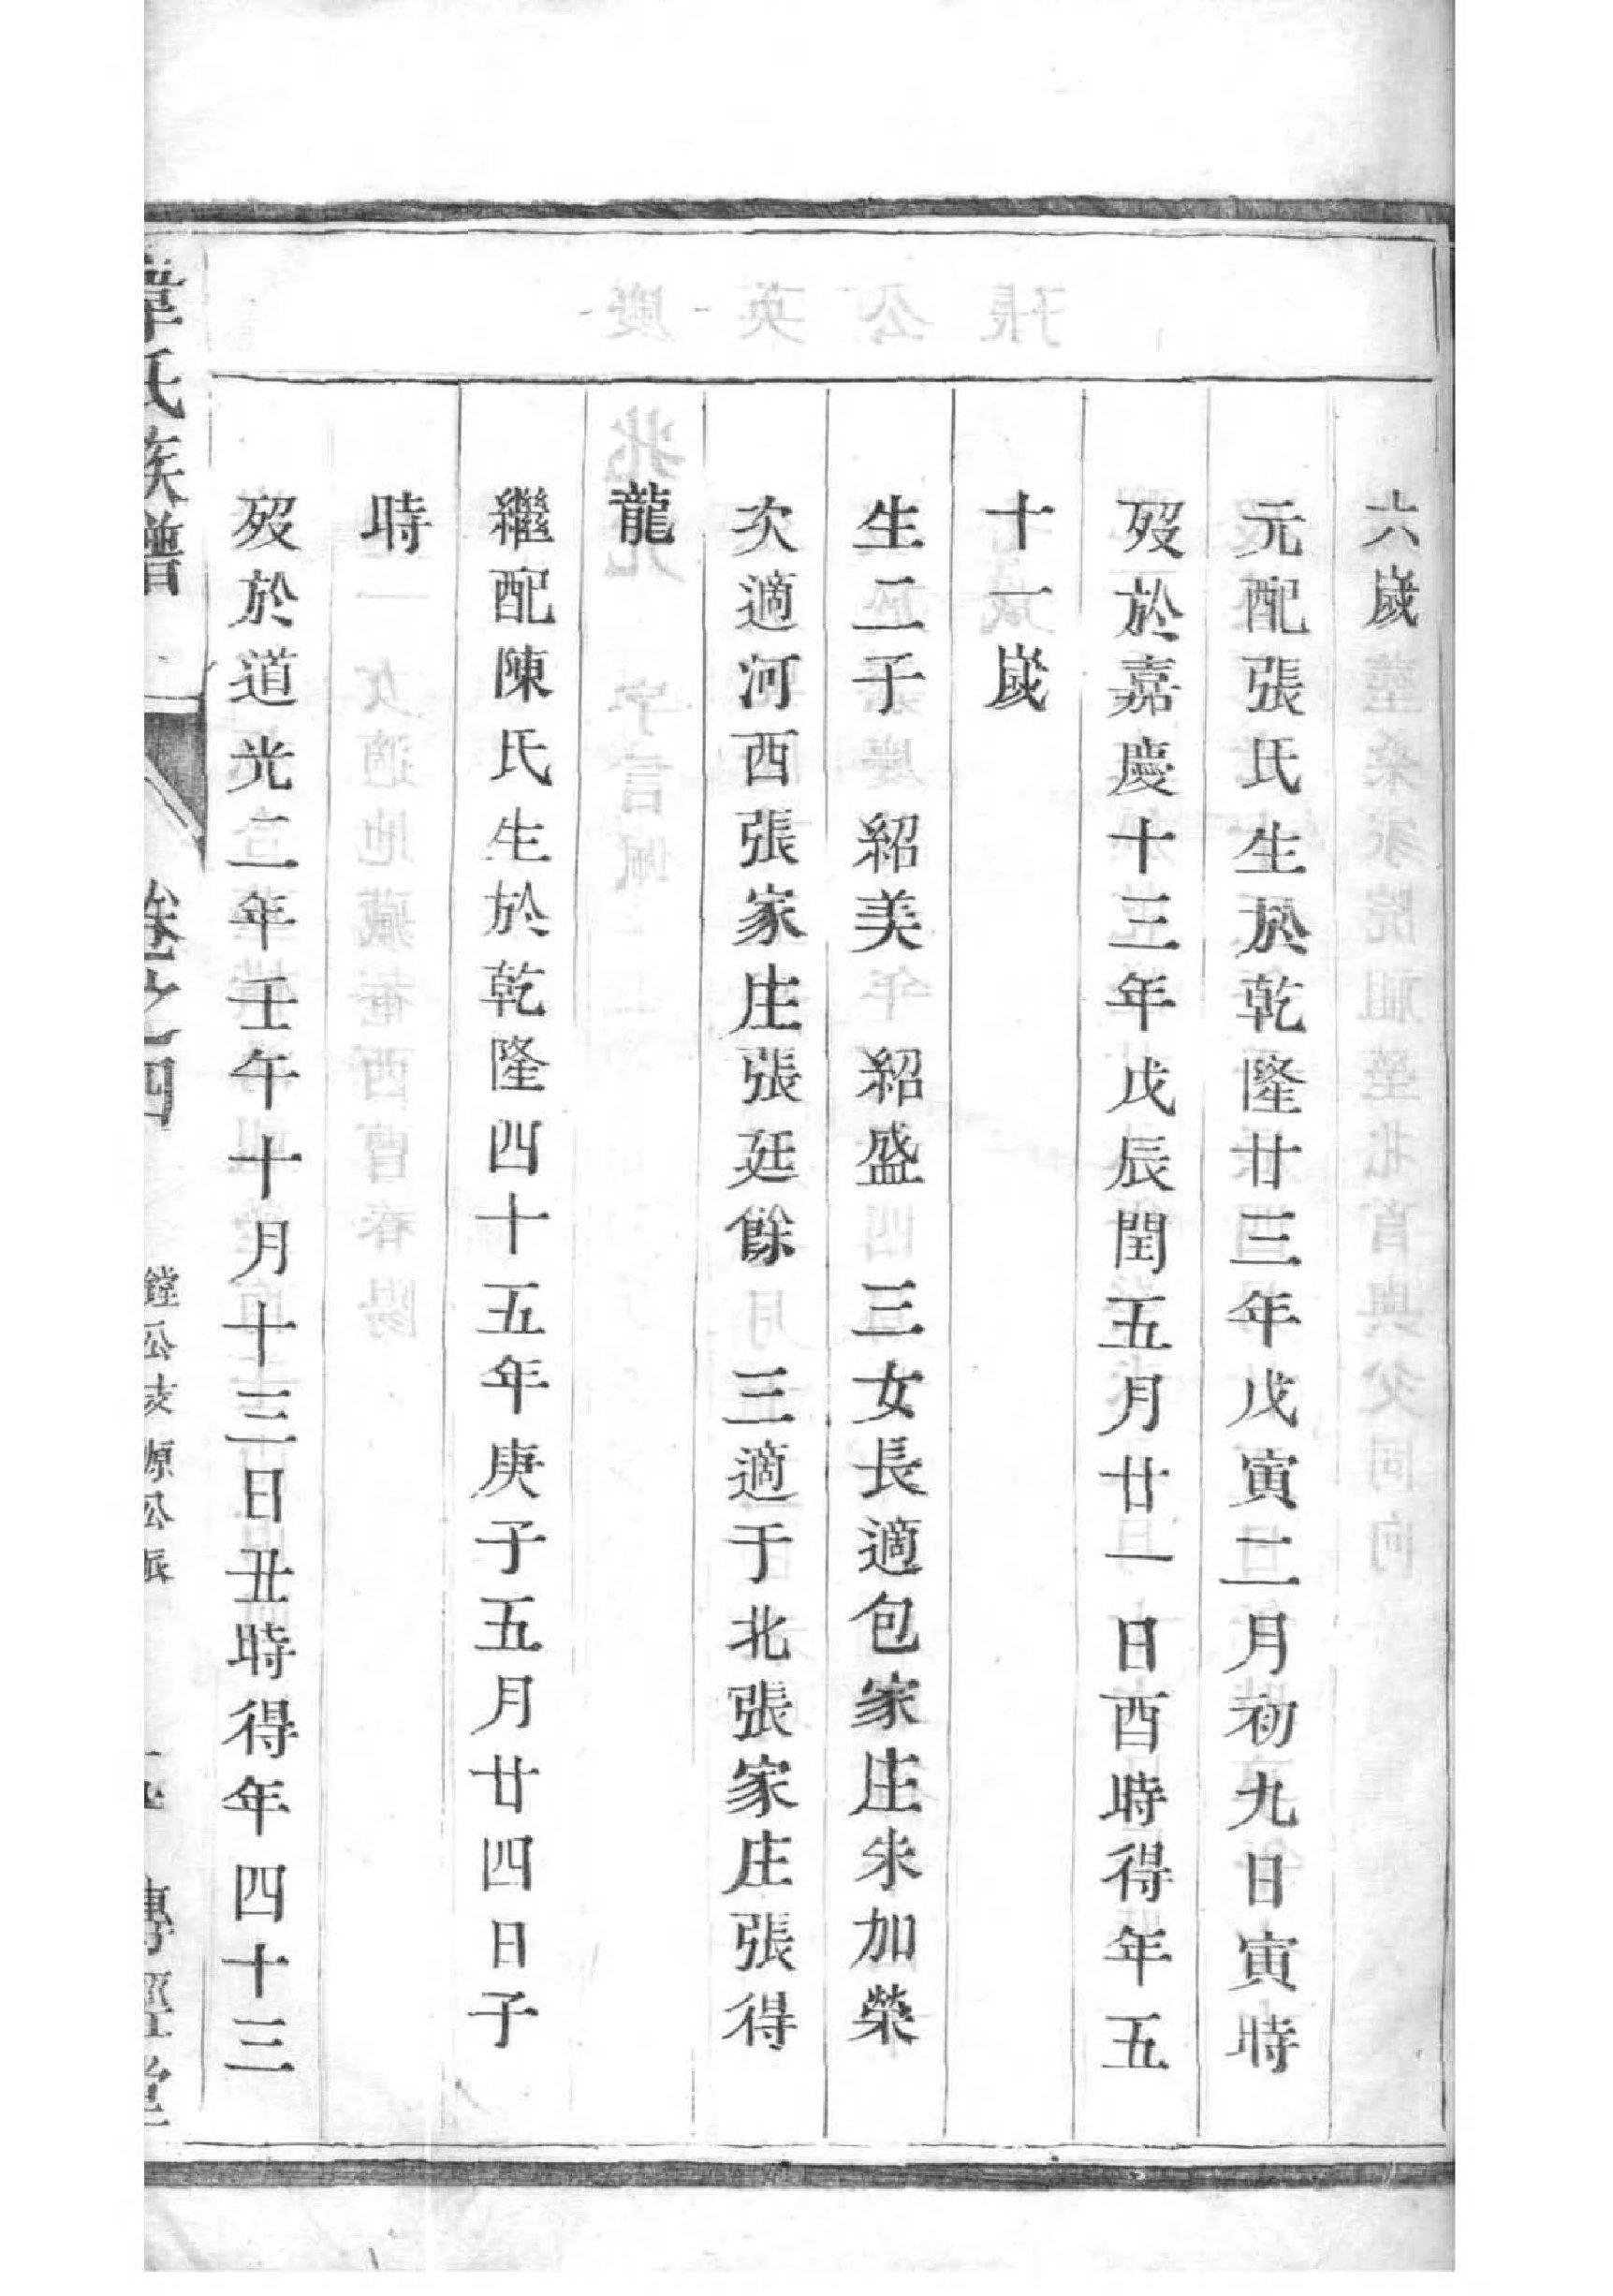 六嵗
元配張氏生於乾隆廿三年戊寅二月初九日寅時
歿於嘉慶十三年戊辰閏五月廿一日酉時得年五
十一嵗
生二子 紹美 紹盛 三女長適包家庄朱加榮
次適河西張家庄張廷餘 三適于北張家庄張得
龍
繼配陳氏生於乾隆四十五年庚子五月廿四日子
時
歿於道光二年壬午十月十三日丑時得年四十三
氏族譜 卷之四 鏜公支源公派 傳經堂